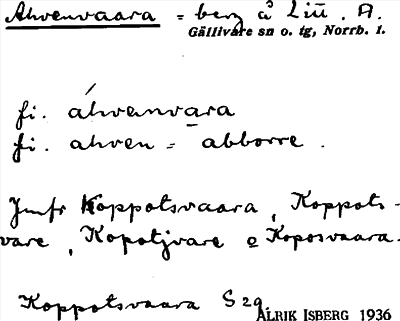 Ahvenvaara = berg å Lill. A.
Gällivare sn o. tg, Norrb. l.
fi. áhvenvara
fi. ahven = abborre.
Jmfr Koppotsvaara, Koppots-
vare, Kopotjvare o Koposvaara.
Koppotsvaara S 29.
ALRIK ISBERG 1936